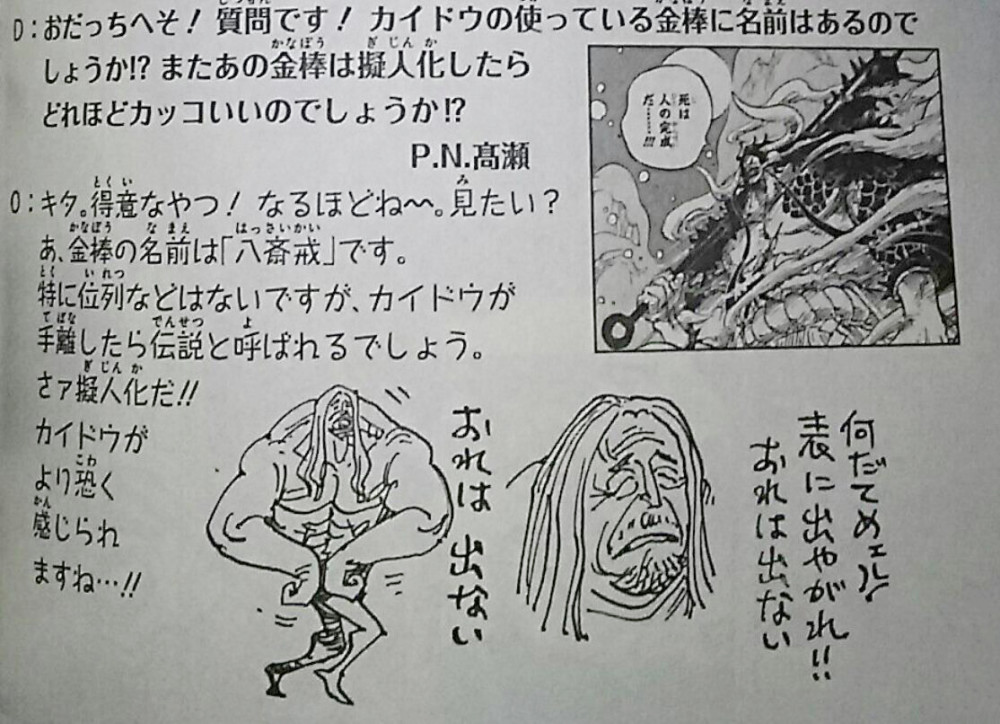 D:おだっちへそ！質問です！カイドウの使っている金棒に名前はあるので
しょうか!?またあの金棒は擬人化したら
どれほどカッコいいのでしょうか!?
P.N.髙瀬
O:キタ。得意なやつ！なるほどね〜。見たい？
あ、金棒の名前は「八斎戒」です。
特に位列などはないですが、カイドウが
手離したら伝説と呼ばれるでしょう。
さァ擬人化だ!!
カイドウが
より恐く
感じられ
ますね…!!
死は
人の完成
だ……!!!
おれは出ない
何だてめェら
表に出やがれ!!
おれは出ない